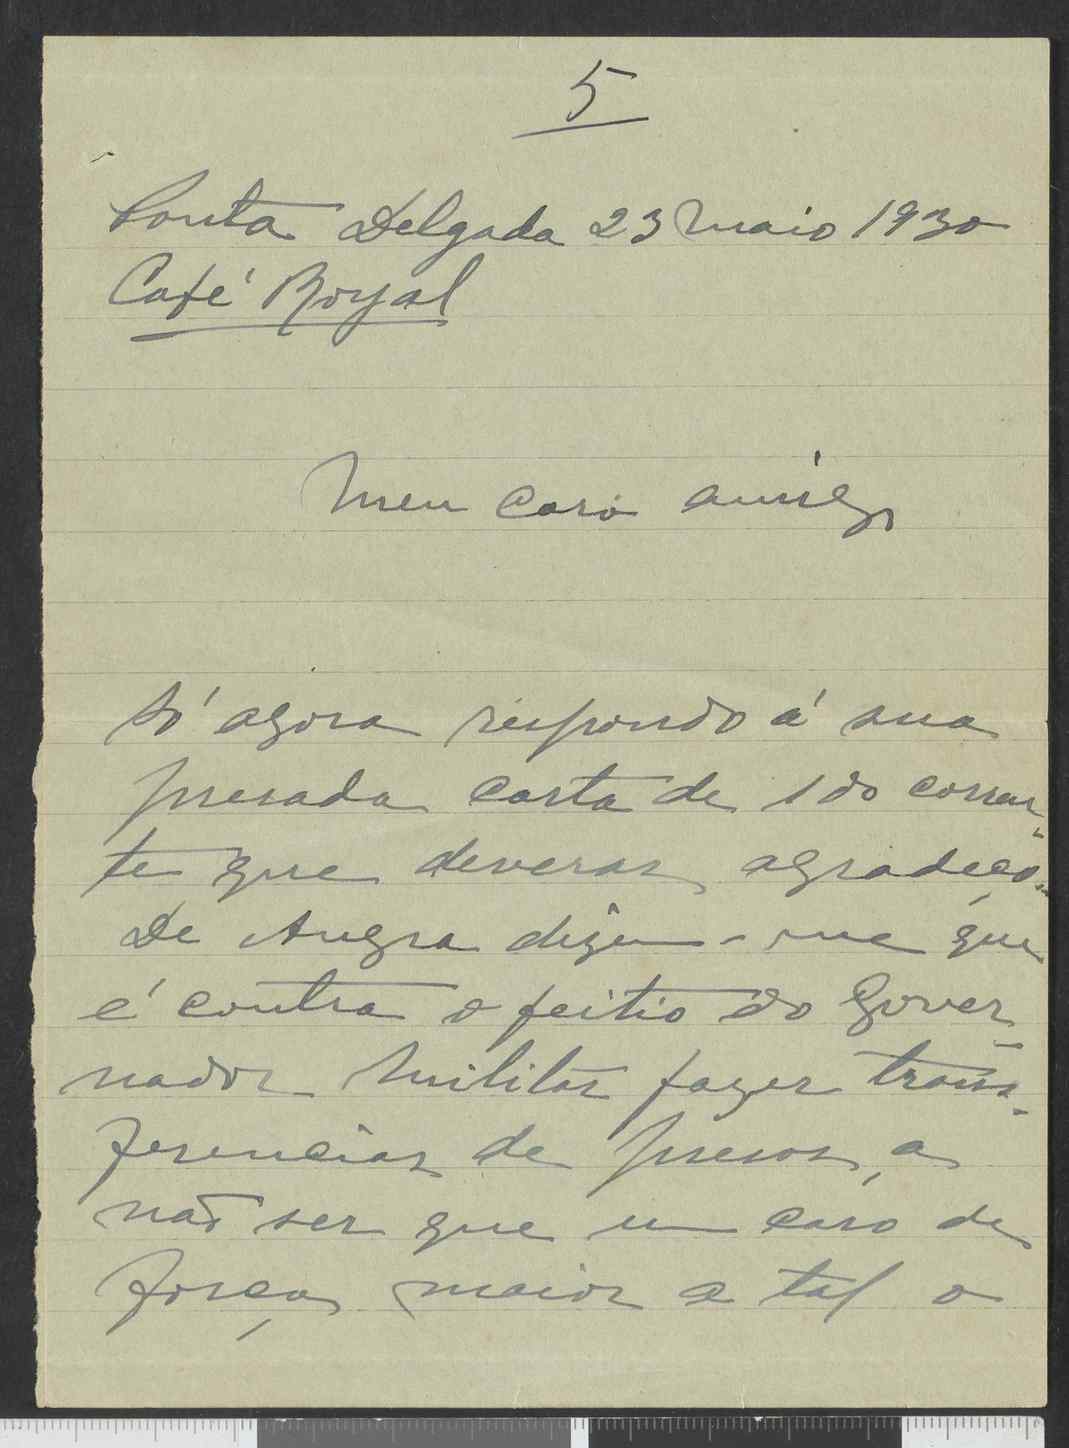 5
Ponta Delgada 23 Maio 1930
Café Royal
Meu caro amigo
Só agora respondo á sua
presada carta de 1 do corren-
te que deveras agradeço.
De Angra dizem-me que
é contra o feitio do Gover-
nador Militar fazer trans-
ferencias de presos, a
não ser que um caso de
força maior a tal o